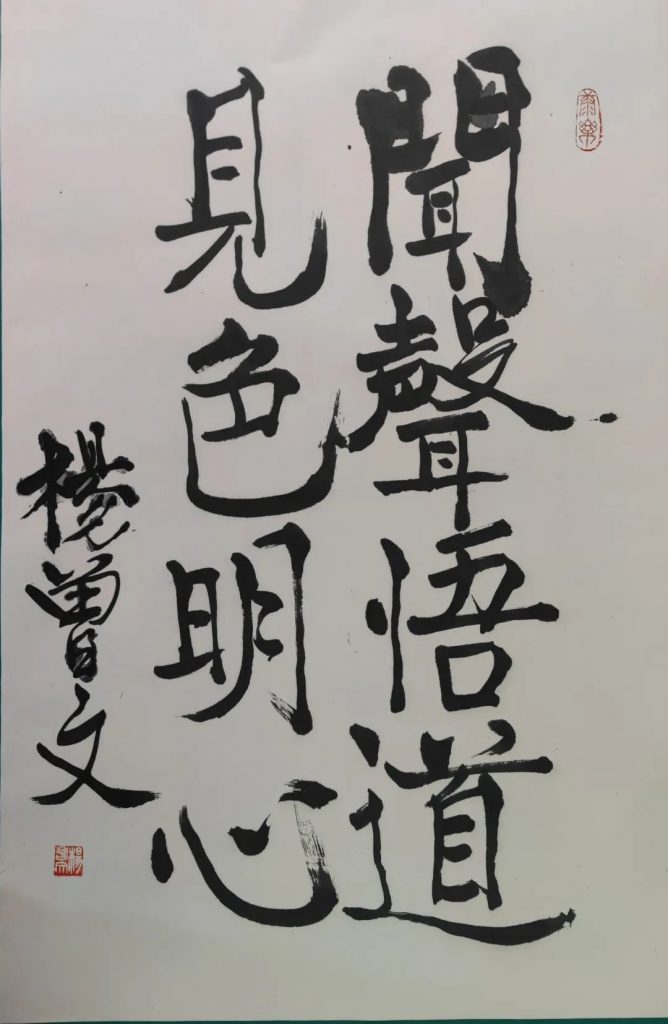 聞聲悟道
見色明心
楊曾文